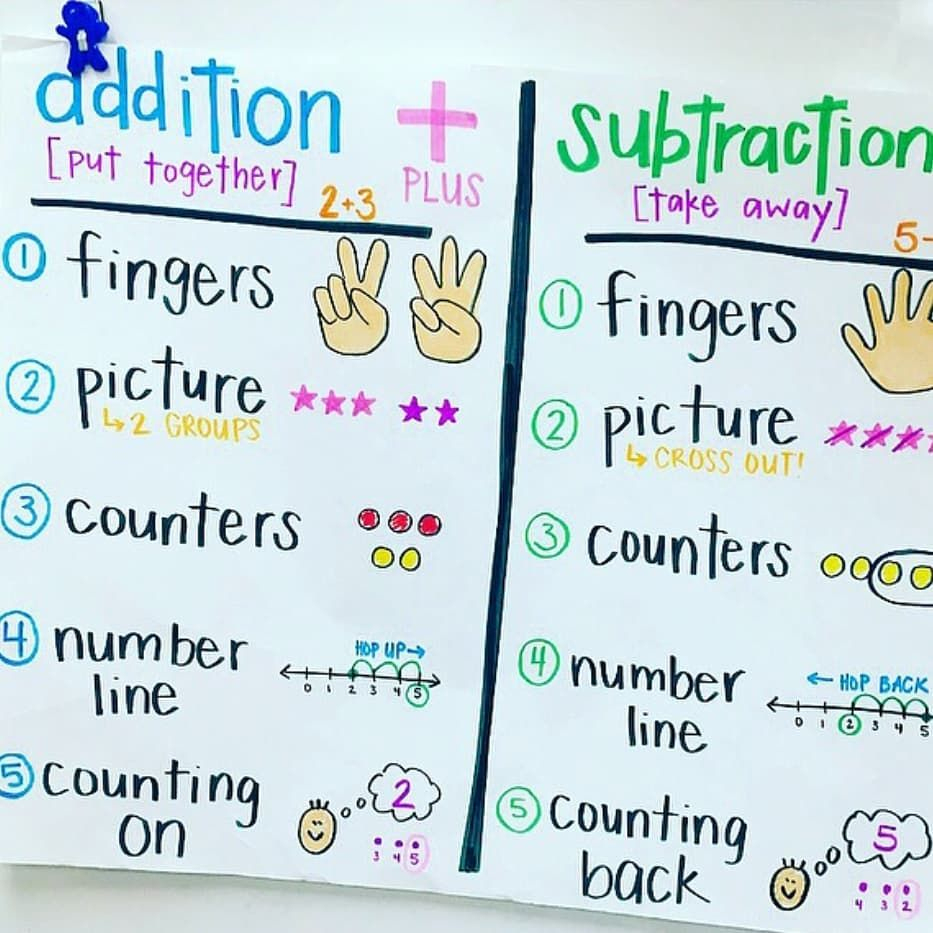 addition
+
[put together]
PLUS
2+3
① fingers
② picture
↳2 GROUPS
③ counters
④ number
line
HOP UP→
0 1 2 3 4 5
⑤ counting
on
2
3 4 5
subtraction
[take away]
5-
① fingers
② picture
↳ CROSS OUT!
③ counters
④ number
line
← HOP BACK
0 1 2 3 4 5
⑤ counting
back
5
4 3 2